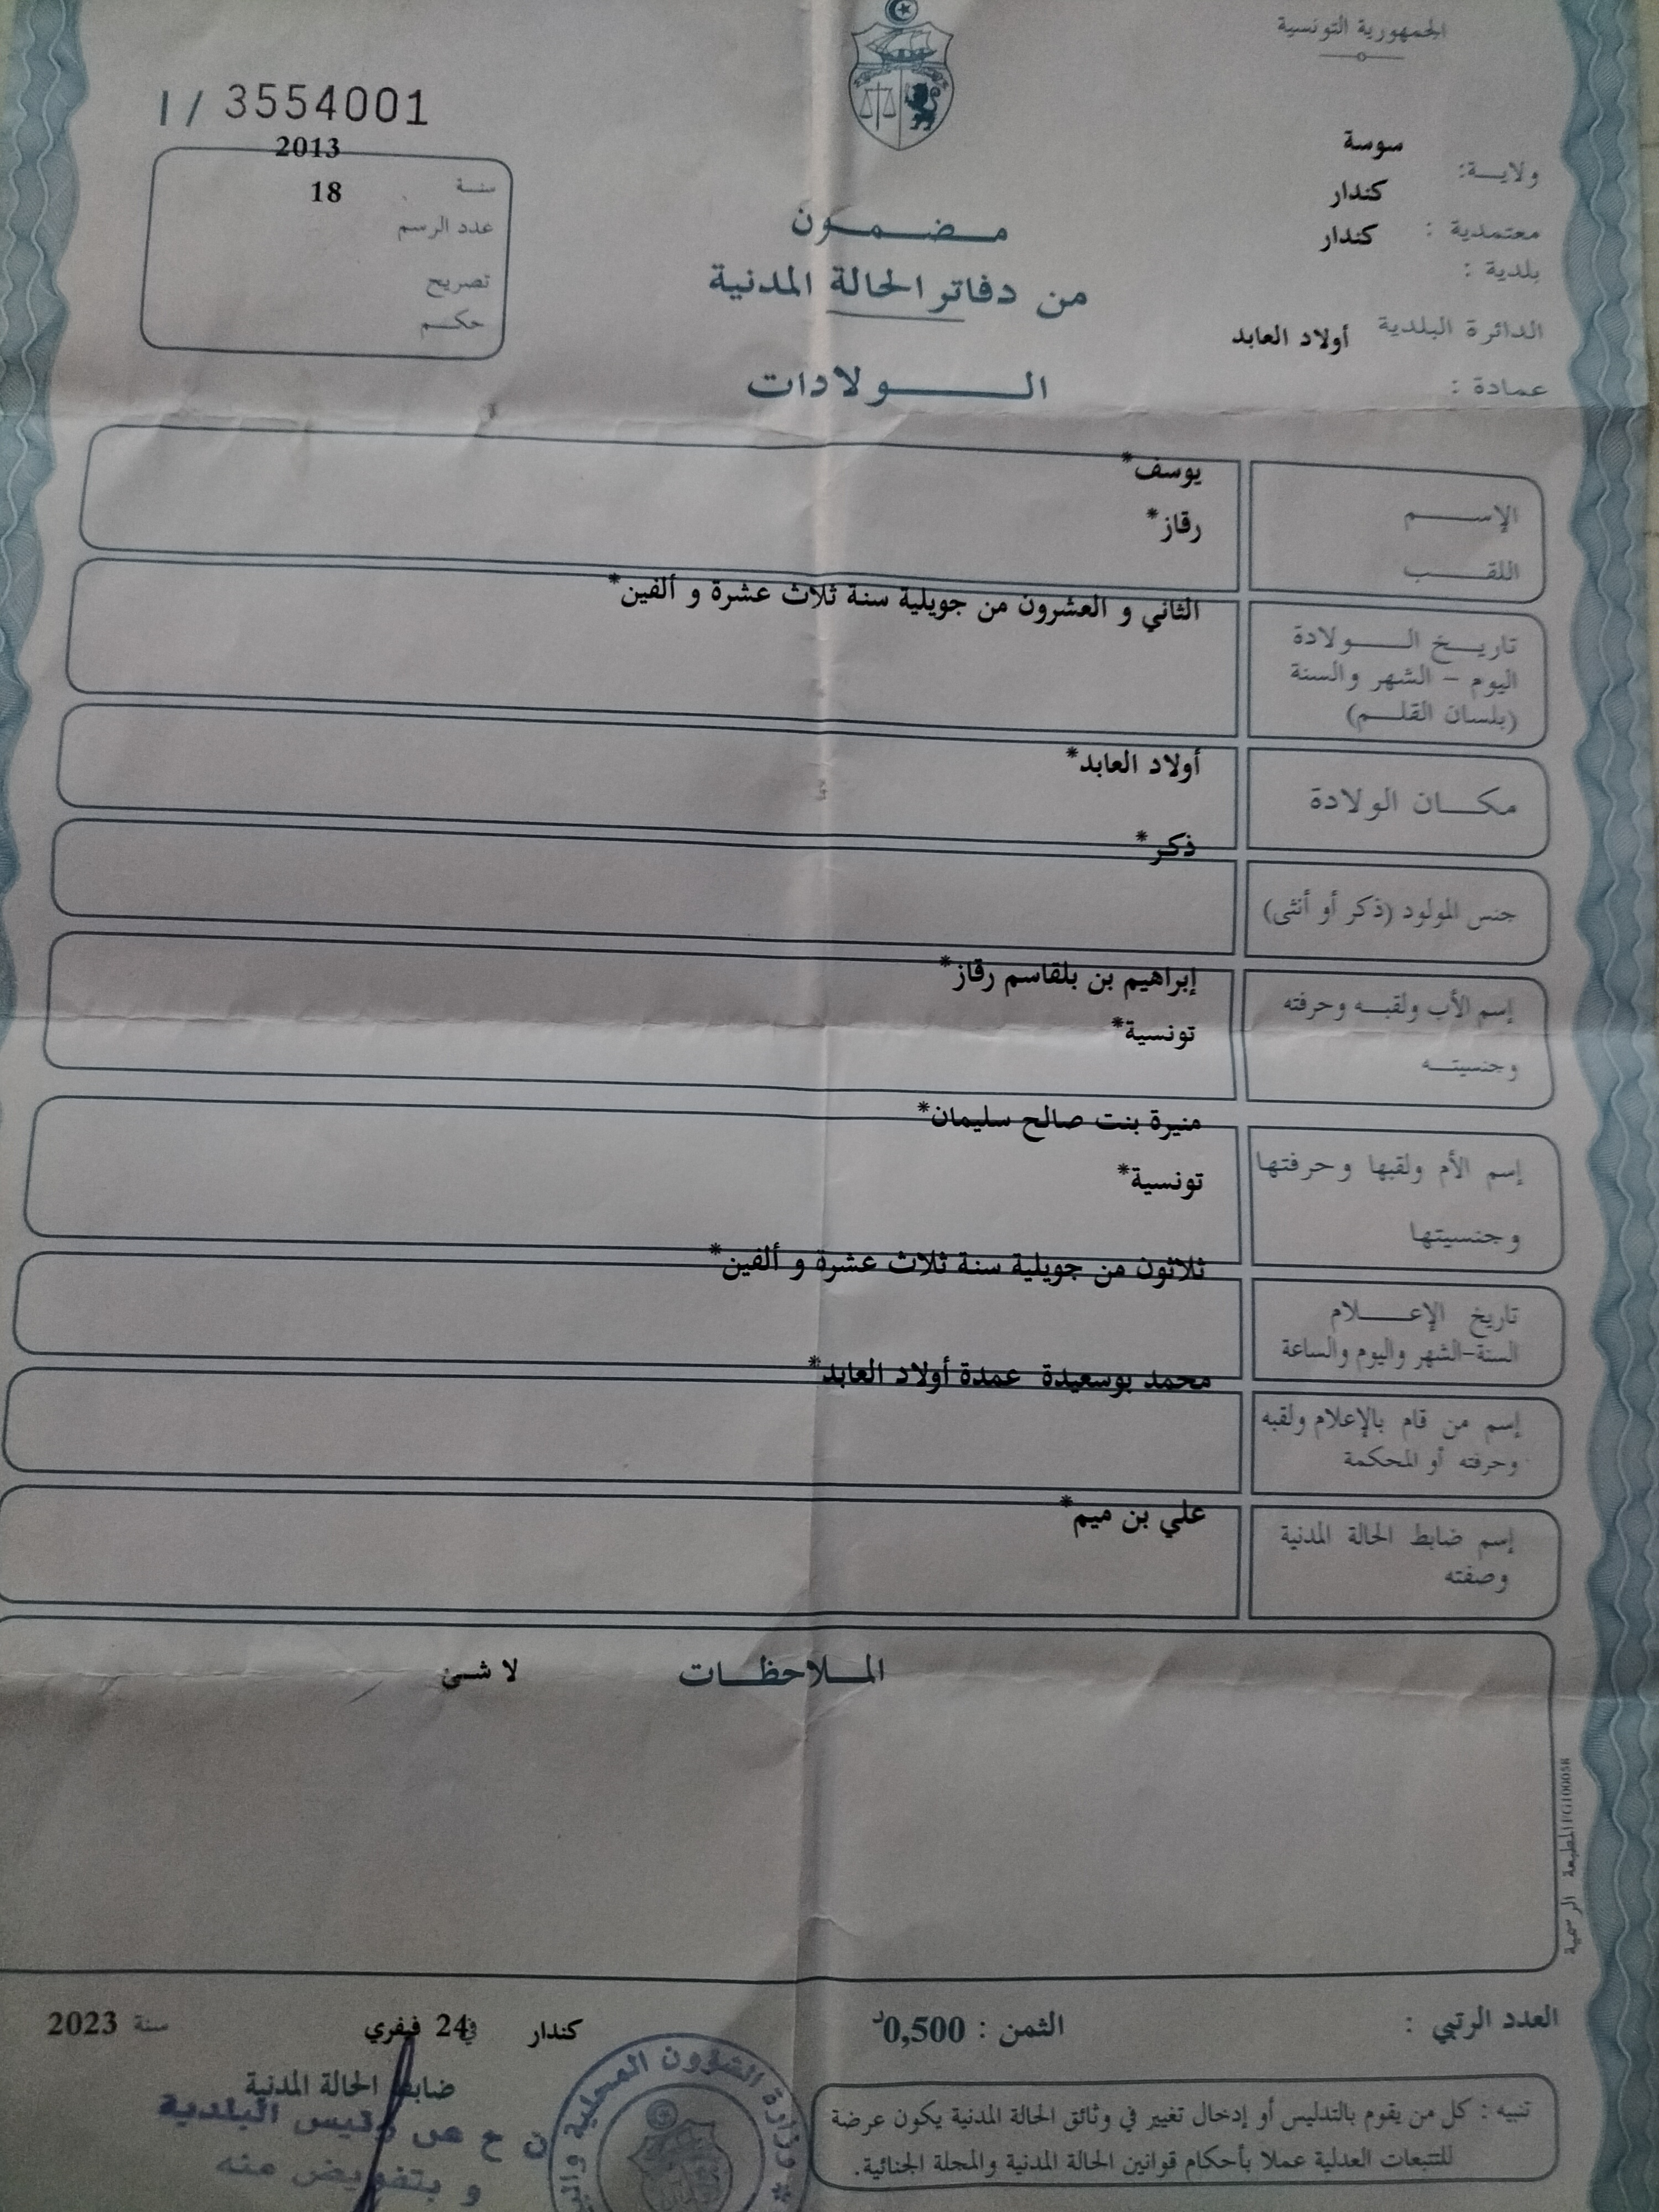 الجمهورية التونسية
I / 3554001
ولايـــة: سوسة
معتمدية : كندار
بلدية : كندار
الدائرة البلدية أولاد العابد
عمـادة :
سنـة 2013
عدد الرسم 18
تصريح
حكـم
مـضـمـون
من دفاتر الحالة المدنية
الـــولادات
الإســـم يوسف*
اللقـــب رقاز*
تاريــخ الـــولادة
اليوم - الشهر والسنة
(بلسان القلـم)
الثاني و العشرون من جويلية سنة ثلاث عشرة و ألفين*
مكـــان الولادة
أولاد العابد*
جنس المولود (ذكر أو أنثى)
ذكر*
إسم الأب ولقبــه وحرفته
وجنسيتــه
إبراهيم بن بلقاسم رقاز*
تونسية*
إسم الأم ولقبها وحرفتها
وجنسيتها
منيرة بنت صالح سليمان*
تونسية*
تاريخ الإعـــلام
السنة-الشهر واليوم والساعة
ثلاثون من جويلية سنة ثلاث عشرة و ألفين*
إسم من قام بالإعلام ولقبه
وحرفته أو المحكمة
محمد بوسعيدة عمدة أولاد العابد*
إسم ضابط الحالة المدنية
وصفته
علي بن ميم*
المـــلاحظـــات لا شئ
المطبعة الرسمية
العدد الرتبي :
الثمن : 0,500د
كندار في 24 فيفري سنة 2023
ضابط الحالة المدنية
ن ح ص رئيس البلدية
و بتفويض منه
وزارة الشؤون المحلية
تنبيه : كل من يقوم بالتدليس أو إدخال تغيير في وثائق الحالة المدنية يكون عرضة
للتتبعات العدلية عملا بأحكام قوانين الحالة المدنية والمجلة الجنائية.